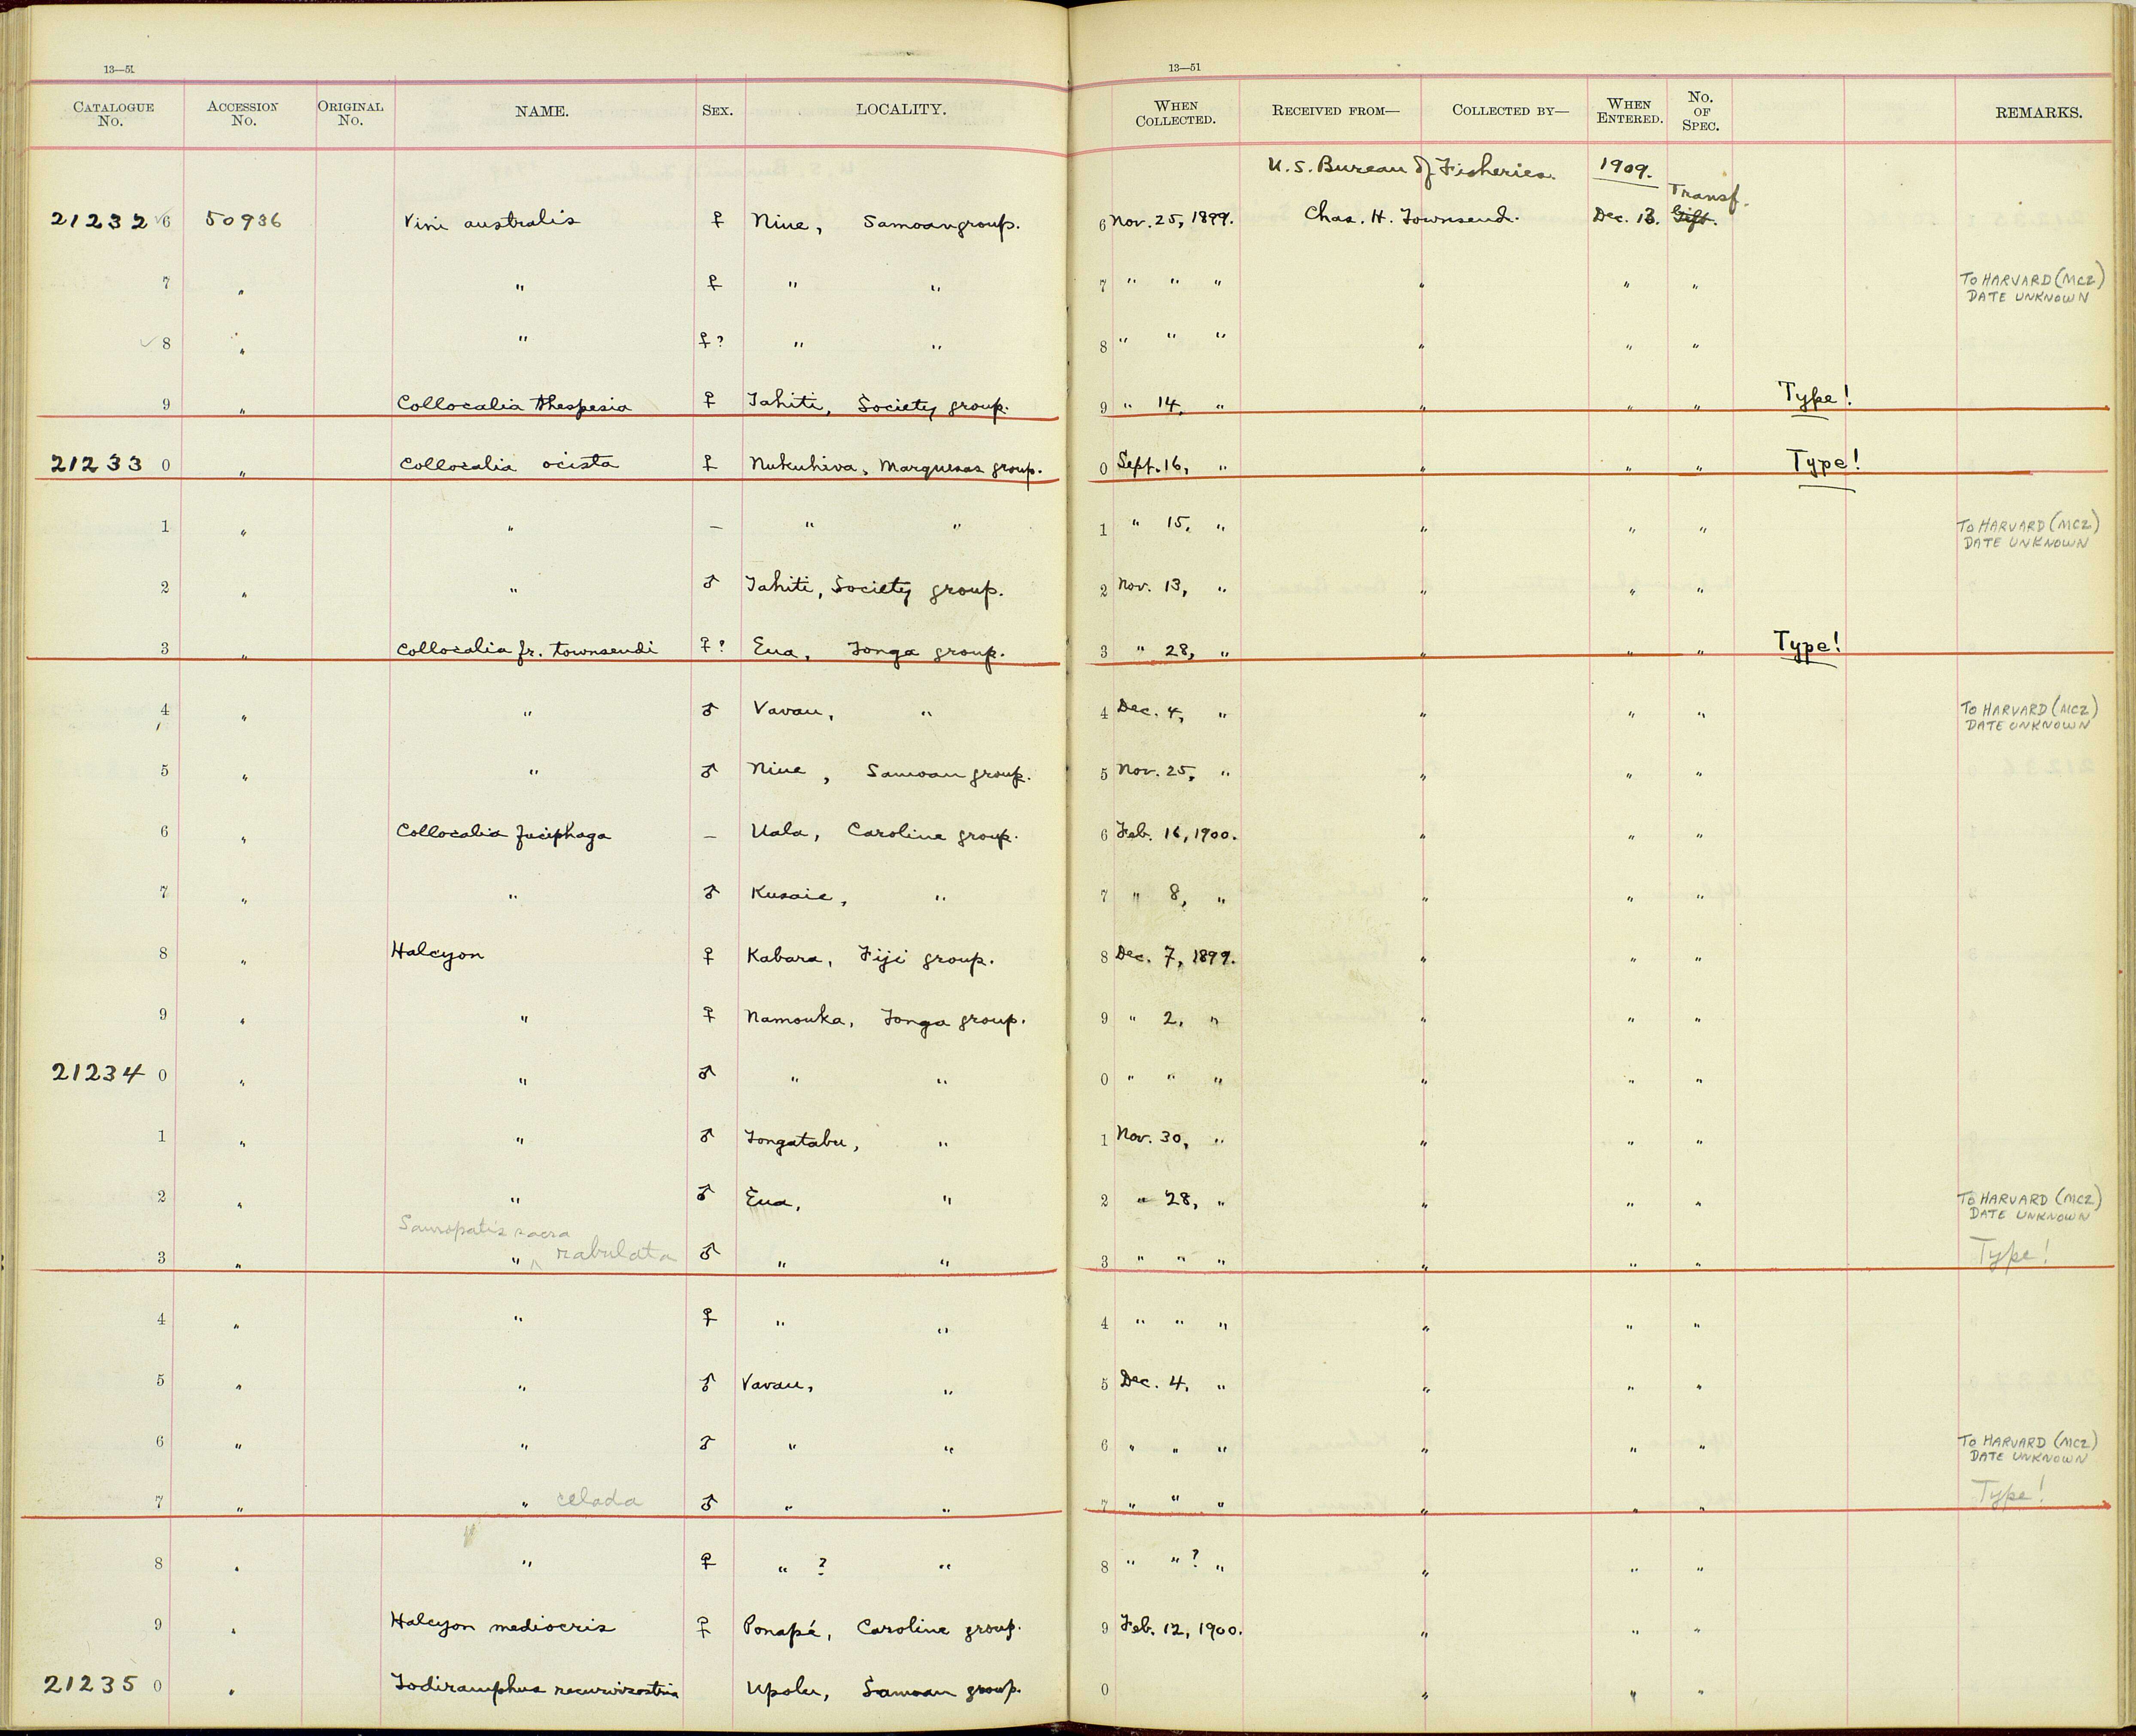 13—51
13—51
CATALOGUE No. ACCESSION No. ORIGINAL No. NAME. SEX. LOCALITY. WHEN COLLECTED. RECEIVED FROM— COLLECTED BY— WHEN ENTERED. No. OF SPEC. REMARKS.
U. S. Bureau of Fisheries. 1909.
Transf.
21232 6 50936 Vini australis ♀ Niue, Samoan group. 6 Nov. 25, 1899. Chas. H. Townsend. Dec. 13. Gift.
7 " " ♀ " " 7 " " " " " " TO HARVARD (MCZ)
DATE UNKNOWN
8 " " ♀? " " 8 " " " " " "
9 " Collocalia thespesia ♀ Tahiti, Society group. 9 " 14, " " " " Type!
21233 0 " Collocalia ocista ♀ Nukuhiva, Marquesas group. 0 Sept. 16, " " " " Type!
1 " " — " " 1 " 15, " " " " TO HARVARD (MCZ)
DATE UNKNOWN
2 " " ♂ Tahiti, Society group. 2 Nov. 13, " " " "
3 " Collocalia fr. townsendi ♀? Eua, Tonga group. 3 " 28, " " " " Type!
4 " " ♂ Vavau, " 4 Dec. 4, " " " " TO HARVARD (MCZ)
DATE UNKNOWN
5 " " ♂ Niue, Samoan group. 5 Nov. 25, " " " "
6 " Collocalia fuciphaga — Uala, Caroline group. 6 Feb. 16, 1900. " " "
7 " " ♂ Kusaie, " 7 " 8, " " " "
8 " Halcyon ♀ Kabara, Fiji group. 8 Dec. 7, 1899. " " "
9 " " ♀ Namouka, Tonga group. 9 " 2, " " " "
21234 0 " " ♂ " " 0 " " " " " "
1 " " ♂ Tongatabu, " 1 Nov. 30, " " " "
2 " " ♂ Eua, " 2 " 28, " " " " TO HARVARD (MCZ)
DATE UNKNOWN
Sauropatis sacra
3 " " rabulata ♂ " " 3 " " " " " " Type!
4 " " ♀ " " 4 " " " " " "
5 " " ♂ Vavau, " 5 Dec. 4, " " " "
6 " " ♂ " " 6 " " " " " " TO HARVARD (MCZ)
DATE UNKNOWN
7 " " celada ♂ " " 7 " " " " " " Type!
8 " " ♀ " ? " 8 " " ? " " " "
9 " Halcyon mediocris ♀ Ponapé, Caroline group. 9 Feb. 12, 1900. " " "
21235 0 " Todiramphus recurvirostris Upolu, Samoan group. 0 " " "